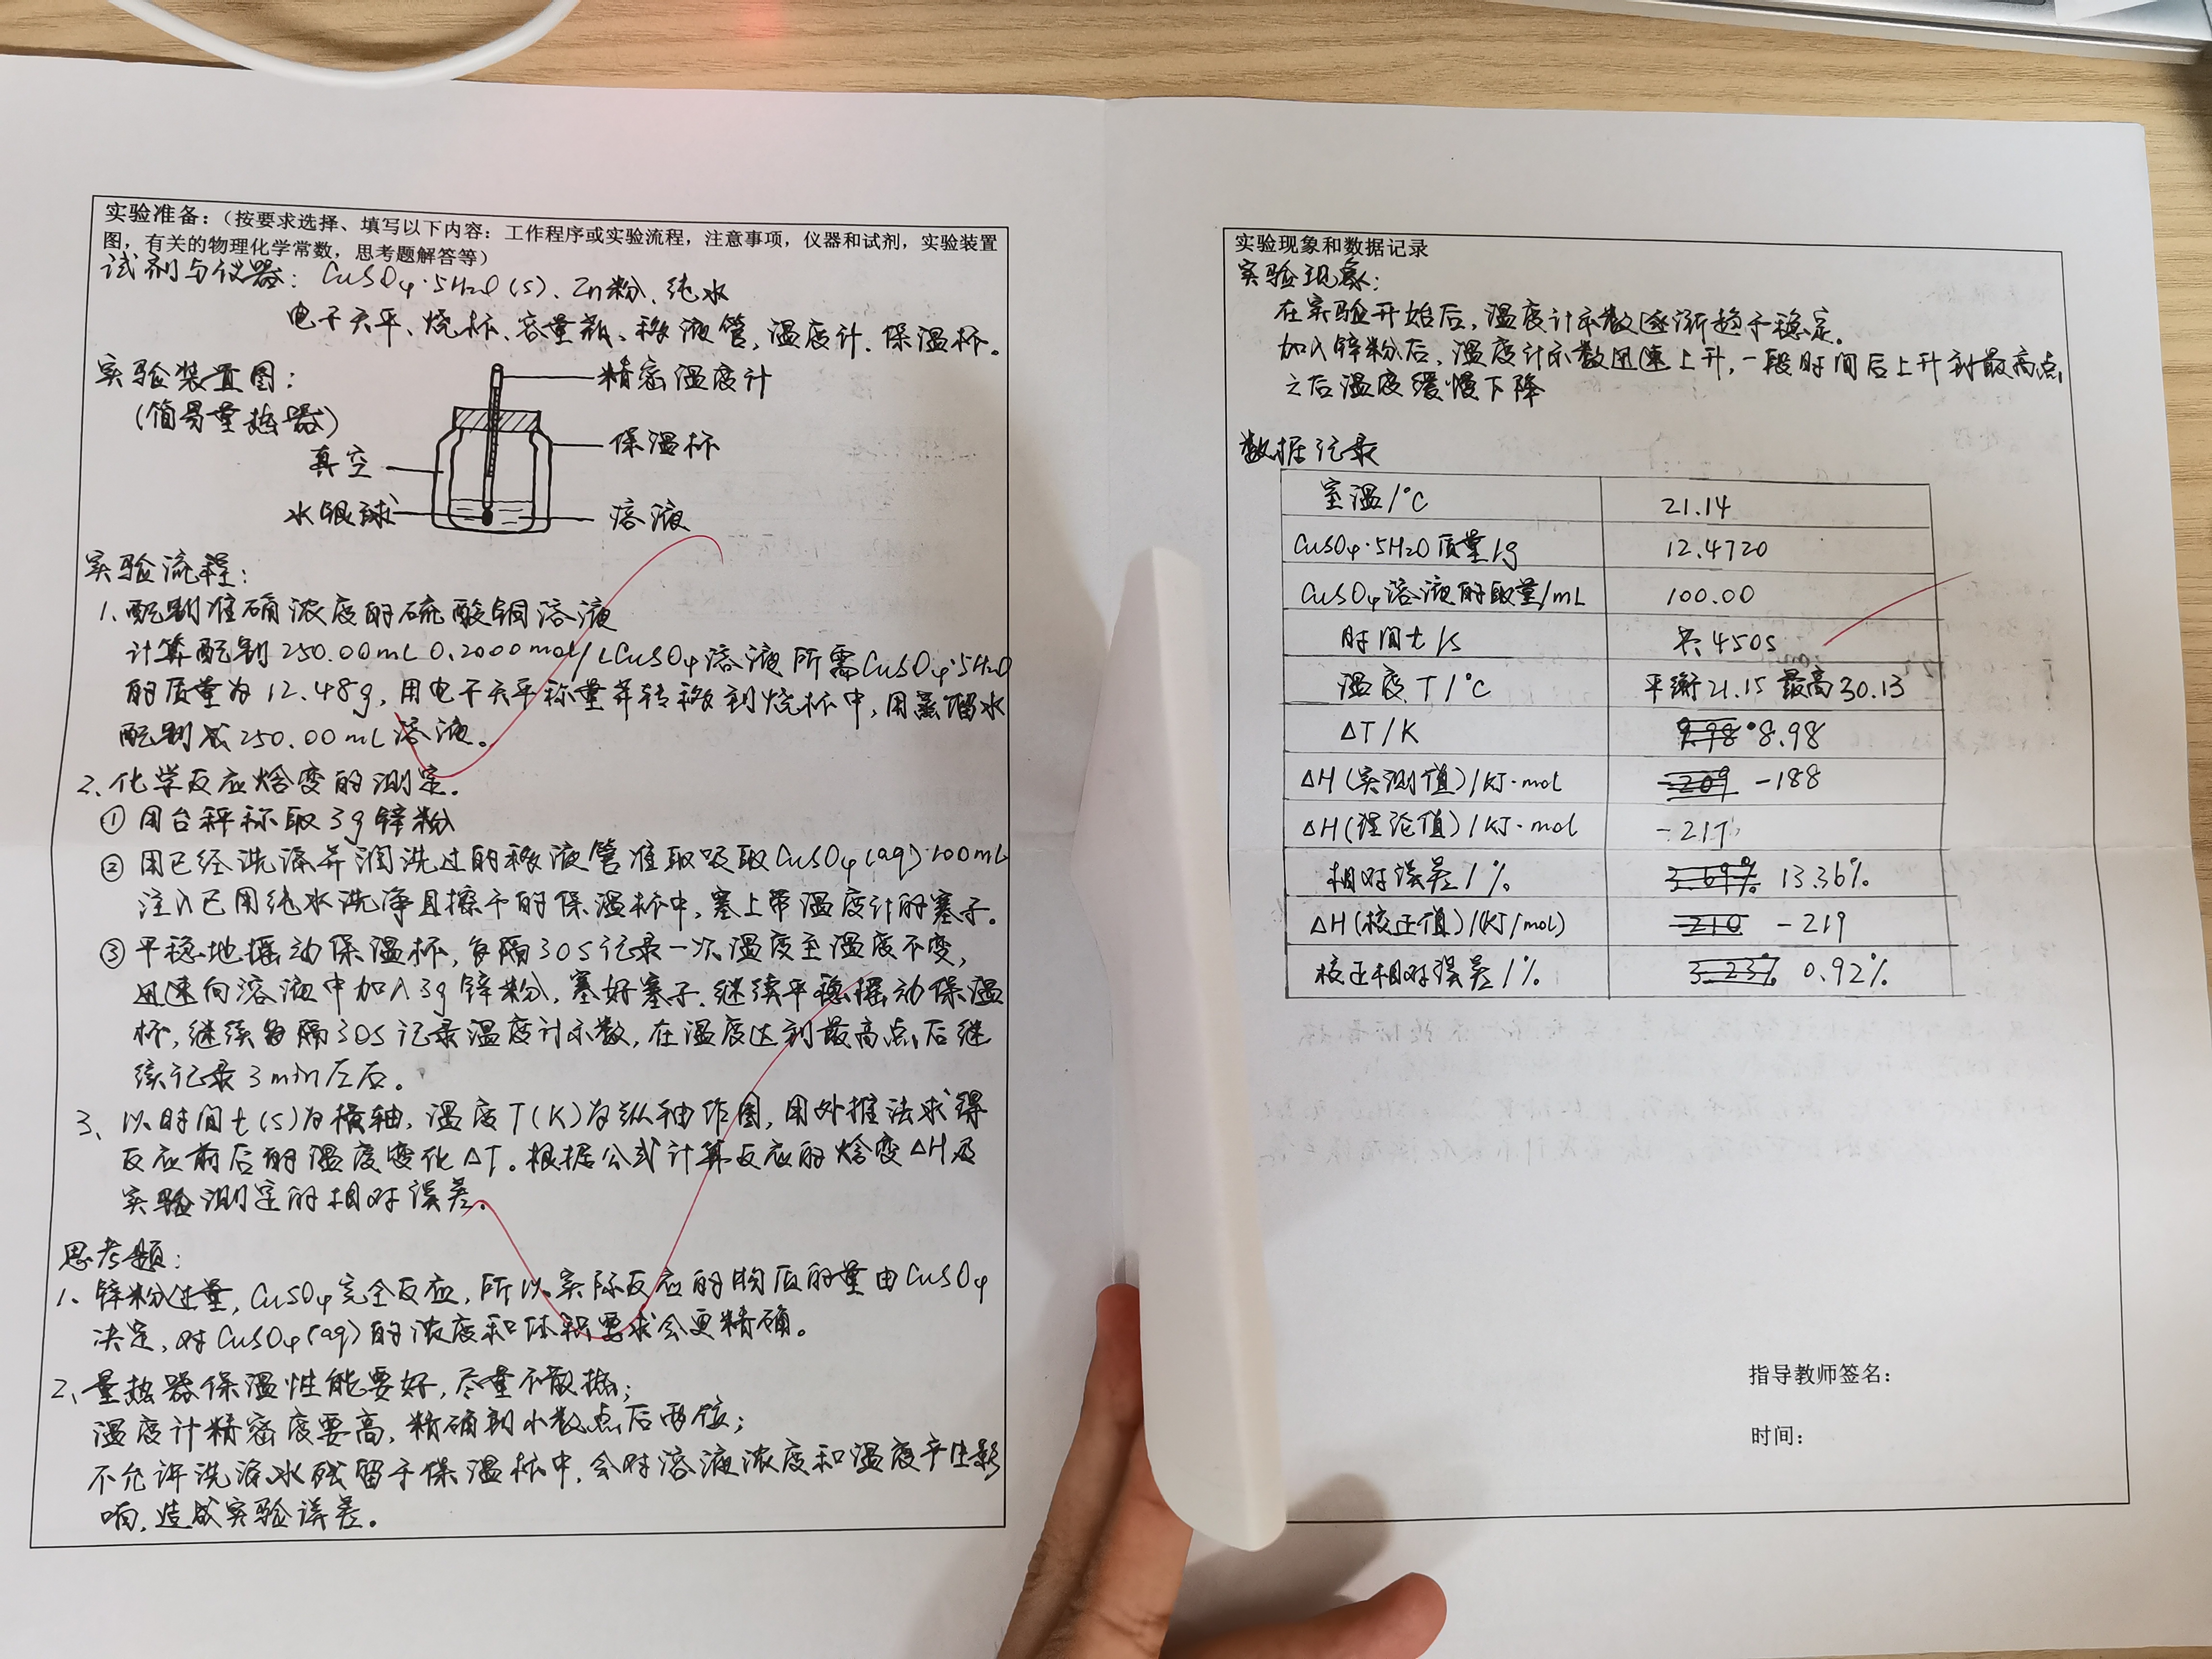 实验准备：（按要求选择、填写以下内容：工作程序或实验流程，注意事项，仪器和试剂，实验装置
图，有关的物理化学常数，思考题解答等）
试剂与仪器：CuSO₄·5H₂O(s)、Zn粉、纯水
电子天平、烧杯、容量瓶、移液管，温度计、保温杯。
实验装置图：
(简易量热器)
精密温度计
保温杯
真空
水银球
溶液
实验流程：
1、配制准确浓度的硫酸铜溶液
计算配制250.00mL 0.2000mol/LCuSO₄溶液所需CuSO₄·5H₂O
的质量为12.48g，用电子天平称量并转移到烧杯中，用蒸馏水
配制成250.00mL溶液。
2、化学反应焓变的测定。
① 用台秤称取3g锌粉
② 用已经洗涤并润洗过的移液管准取吸取CuSO₄(aq)100mL
注入已用纯水洗净且擦干的保温杯中，塞上带温度计的塞子。
③ 平稳地摇动保温杯，每隔30s记录一次温度至温度不变，
迅速向溶液中加入3g锌粉，塞好塞子，继续平稳摇动保温
杯，继续每隔30s记录温度计示数，在温度达到最高点后继
续记录3min左右。
3、以时间t(s)为横轴，温度T(K)为纵轴作图，用外推法求得
反应前后的温度变化ΔT。根据公式计算反应的焓变ΔH及
实验测定的相对误差。
思考题：
1、锌粉过量，CuSO₄完全反应，所以实际反应的物质的量由CuSO₄
决定，对CuSO₄(aq)的浓度和体积要求会更精确。
2、量热器保温性能要好，尽量不散热；
温度计精密度要高，精确到小数点后两位；
不允许洗涤水残留于保温杯中，会对溶液浓度和温度产生影
响，造成实验误差。
实验现象和数据记录
实验现象：
在实验开始后，温度计示数逐渐趋于稳定。
加入锌粉后，温度计示数迅速上升，一段时间后上升到最高点，
之后温度缓慢下降
数据记录
室温/°C 21.14
CuSO₄·5H₂O质量/g 12.4720
CuSO₄溶液的取量/mL 100.00
时间t/s 共450s
温度T/°C 平衡21.15 最高30.13
ΔT/K 8.98
ΔH(实测值)/KJ·mol -209 -188
ΔH(理论值)/KJ·mol -217
相对误差/% 3.69% 13.36%
ΔH(校正值)/(KJ/mol) -210 -219
校正相对误差/% 3.23% 0.92%
指导教师签名：
时间：